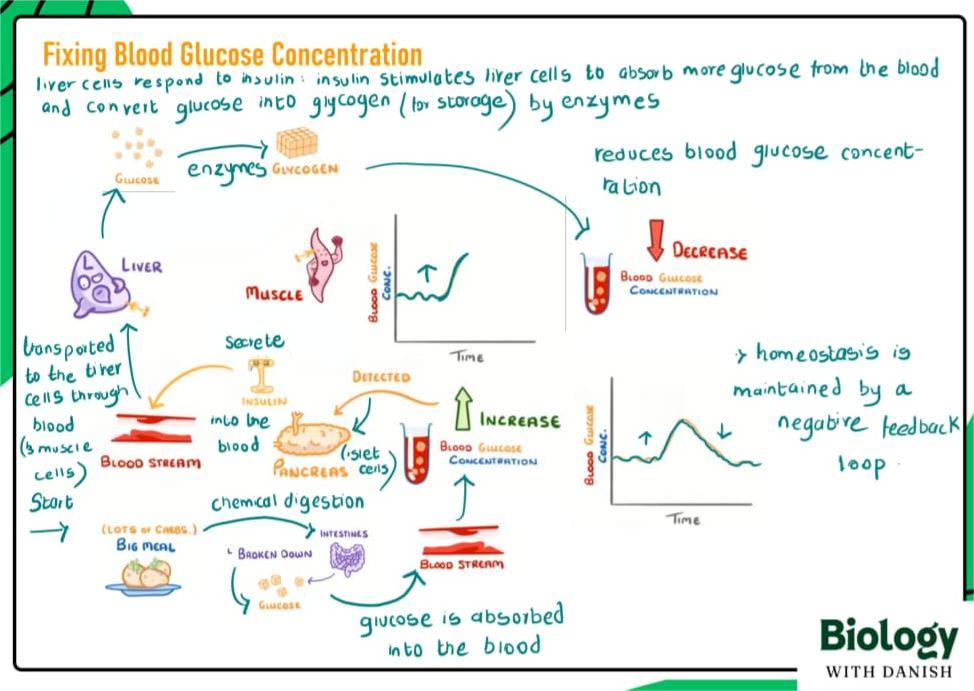 Fixing Blood Glucose Concentration
liver cells respond to insulin : insulin stimulates liver cells to absorb more glucose from the blood
and convert glucose into glycogen (for storage) by enzymes
GLUCOSE
enzymes
GLYCOGEN
reduces blood glucose concent-
ration
DECREASE
BLOOD GLUCOSE
CONCENTRATION
LIVER
MUSCLE
BLOOD GLUCOSE
CONC.
TIME
transported
to the liver
cells through
blood
(& muscle
cells)
secrete
INSULIN
into the
blood
BLOOD STREAM
DETECTED
PANCREAS
(islet
cells)
INCREASE
BLOOD GLUCOSE
CONCENTRATION
BLOOD GLUCOSE
CONC.
TIME
> homeostasis is
maintained by a
negative feedback
loop.
Start
(LOTS OF CARBS.)
BIG MEAL
chemical digestion
INTESTINES
BROKEN DOWN
GLUCOSE
BLOOD STREAM
glucose is absorbed
into the blood
Biology
WITH DANISH